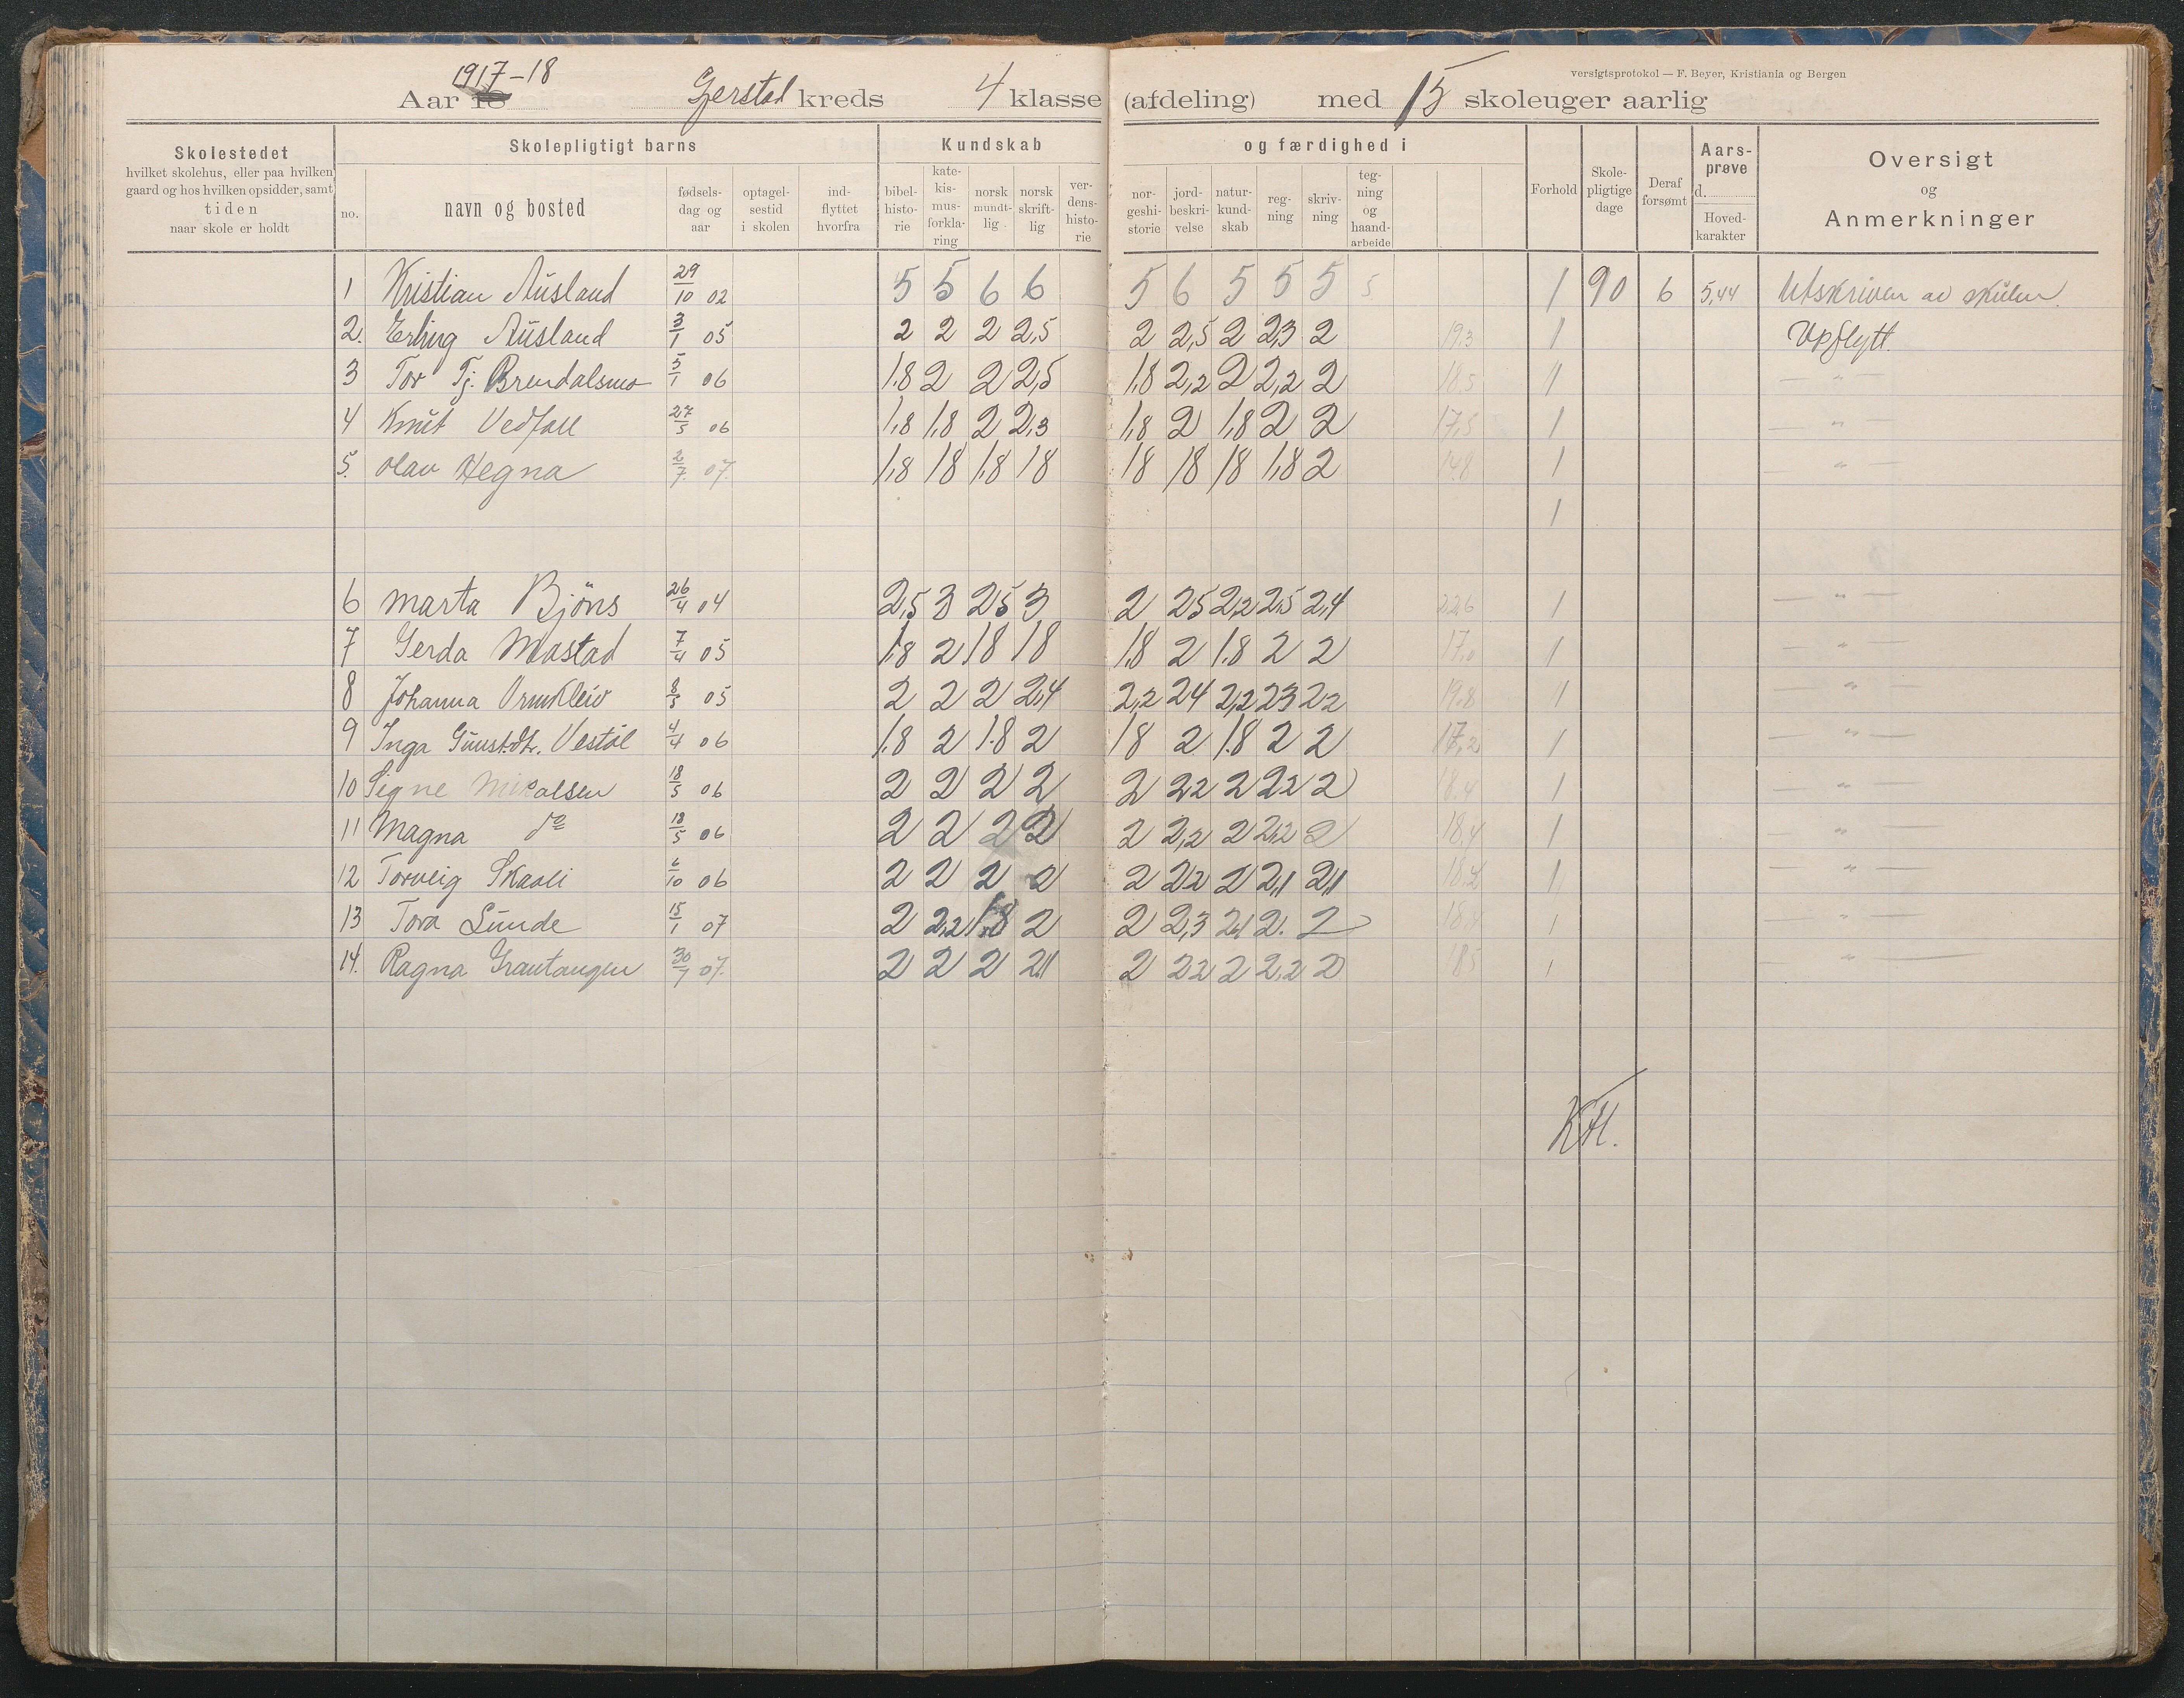 versigtsprotokol — F. Beyer, Kristiania og Bergen
1917-18
Aar 18 Gerstad kreds 4 klasse (afdeling) med 15 skoleuger aarlig
Skolestedet
hvilket skolehus, eller paa hvilken
gaard og hos hvilken opsidder, samt
tiden
naar skole er holdt
Skolepligtigt barns
no.
navn og bosted
fødsels-
dag og
aar
optagel-
sestid
i skolen
ind-
flyttet
hvorfra
Kundskab og færdighed i
bibel-
histo-
rie
kate-
kis-
mus-
forkla-
ring
norsk
mundt-
lig
norsk
skrift-
lig
ver-
dens-
histo-
rie
nor-
geshi-
storie
jord-
beskri-
velse
natur-
kund-
skab
reg-
ning
skriv-
ning
teg-
ning
og
haand-
arbeide
Forhold
Skole-
pligtige
dage
Deraf
forsømt
Aars-
prøve
d.
Hoved-
karakter
Oversigt
og
Anmerkninger
1 Kristian Ausland 29/10 02 5 5 6 6 5 6 5 5 5 5 1 90 6 5,44 Utskriven av skulen.
2. Erling Ausland 3/1 05 2 2 2 2,5 2 2,5 2 2,3 2 19,3 1 Upflytt.
3 Tor Tj. Brendalsmo 5/1 06 1,8 2 2 2,5 1,8 2,2 2 2,2 2 18,5 1 — " —
4 Knut Vedfall 27/5 06 1,8 1,8 2 2,3 1,8 2 1,8 2 2 17,5 1 — " —
5. Olav Hegna 2/7 07. 1,8 18 1,8 18 18 18 18 1,8 2 14,8 1 — " —
1
6 Marta Bjöns 26/4 04 2,5 3 25 3 2 25 2,2 2,5 2,4 22,6 1 — " —
7 Gerda Mostad 7/4 05 1,8 2 18 18 1,8 2 1.8 2 2 17,0 1 — " —
8 Johanna Ormkleiv 8/5 05 2 2 2 2,4 2,2 24 2,2 23 22 19.8 1 — " —
9 Inga Gunst.dt. Vestøl 4/4 06 1.8 2 1.8 2 18 2 1.8 2 2 17,2 1 — " —
10 Signe Mikalsen 18/5 06 2 2 2 2 2 22 2 22 2 18,4 1 — " —
11 Magna do 18/5 06 2 2 2 2 2 2,2 2 2,2 2 18,4 1 — " —
12 Torveig Skaali 6/10 06 2 2 2 2 2 22 2 2,1 2,1 18,2 1 — " —
13 Tora Lunde 15/1 07 2 2,2 1.8 2 2 2,3 2,1 2. 2 18,4 1 — " —
14. Ragna Grautangen 30/7 07. 2 2 2 2,1 2 22 2 2,2 2 185 1 — " —
KH.